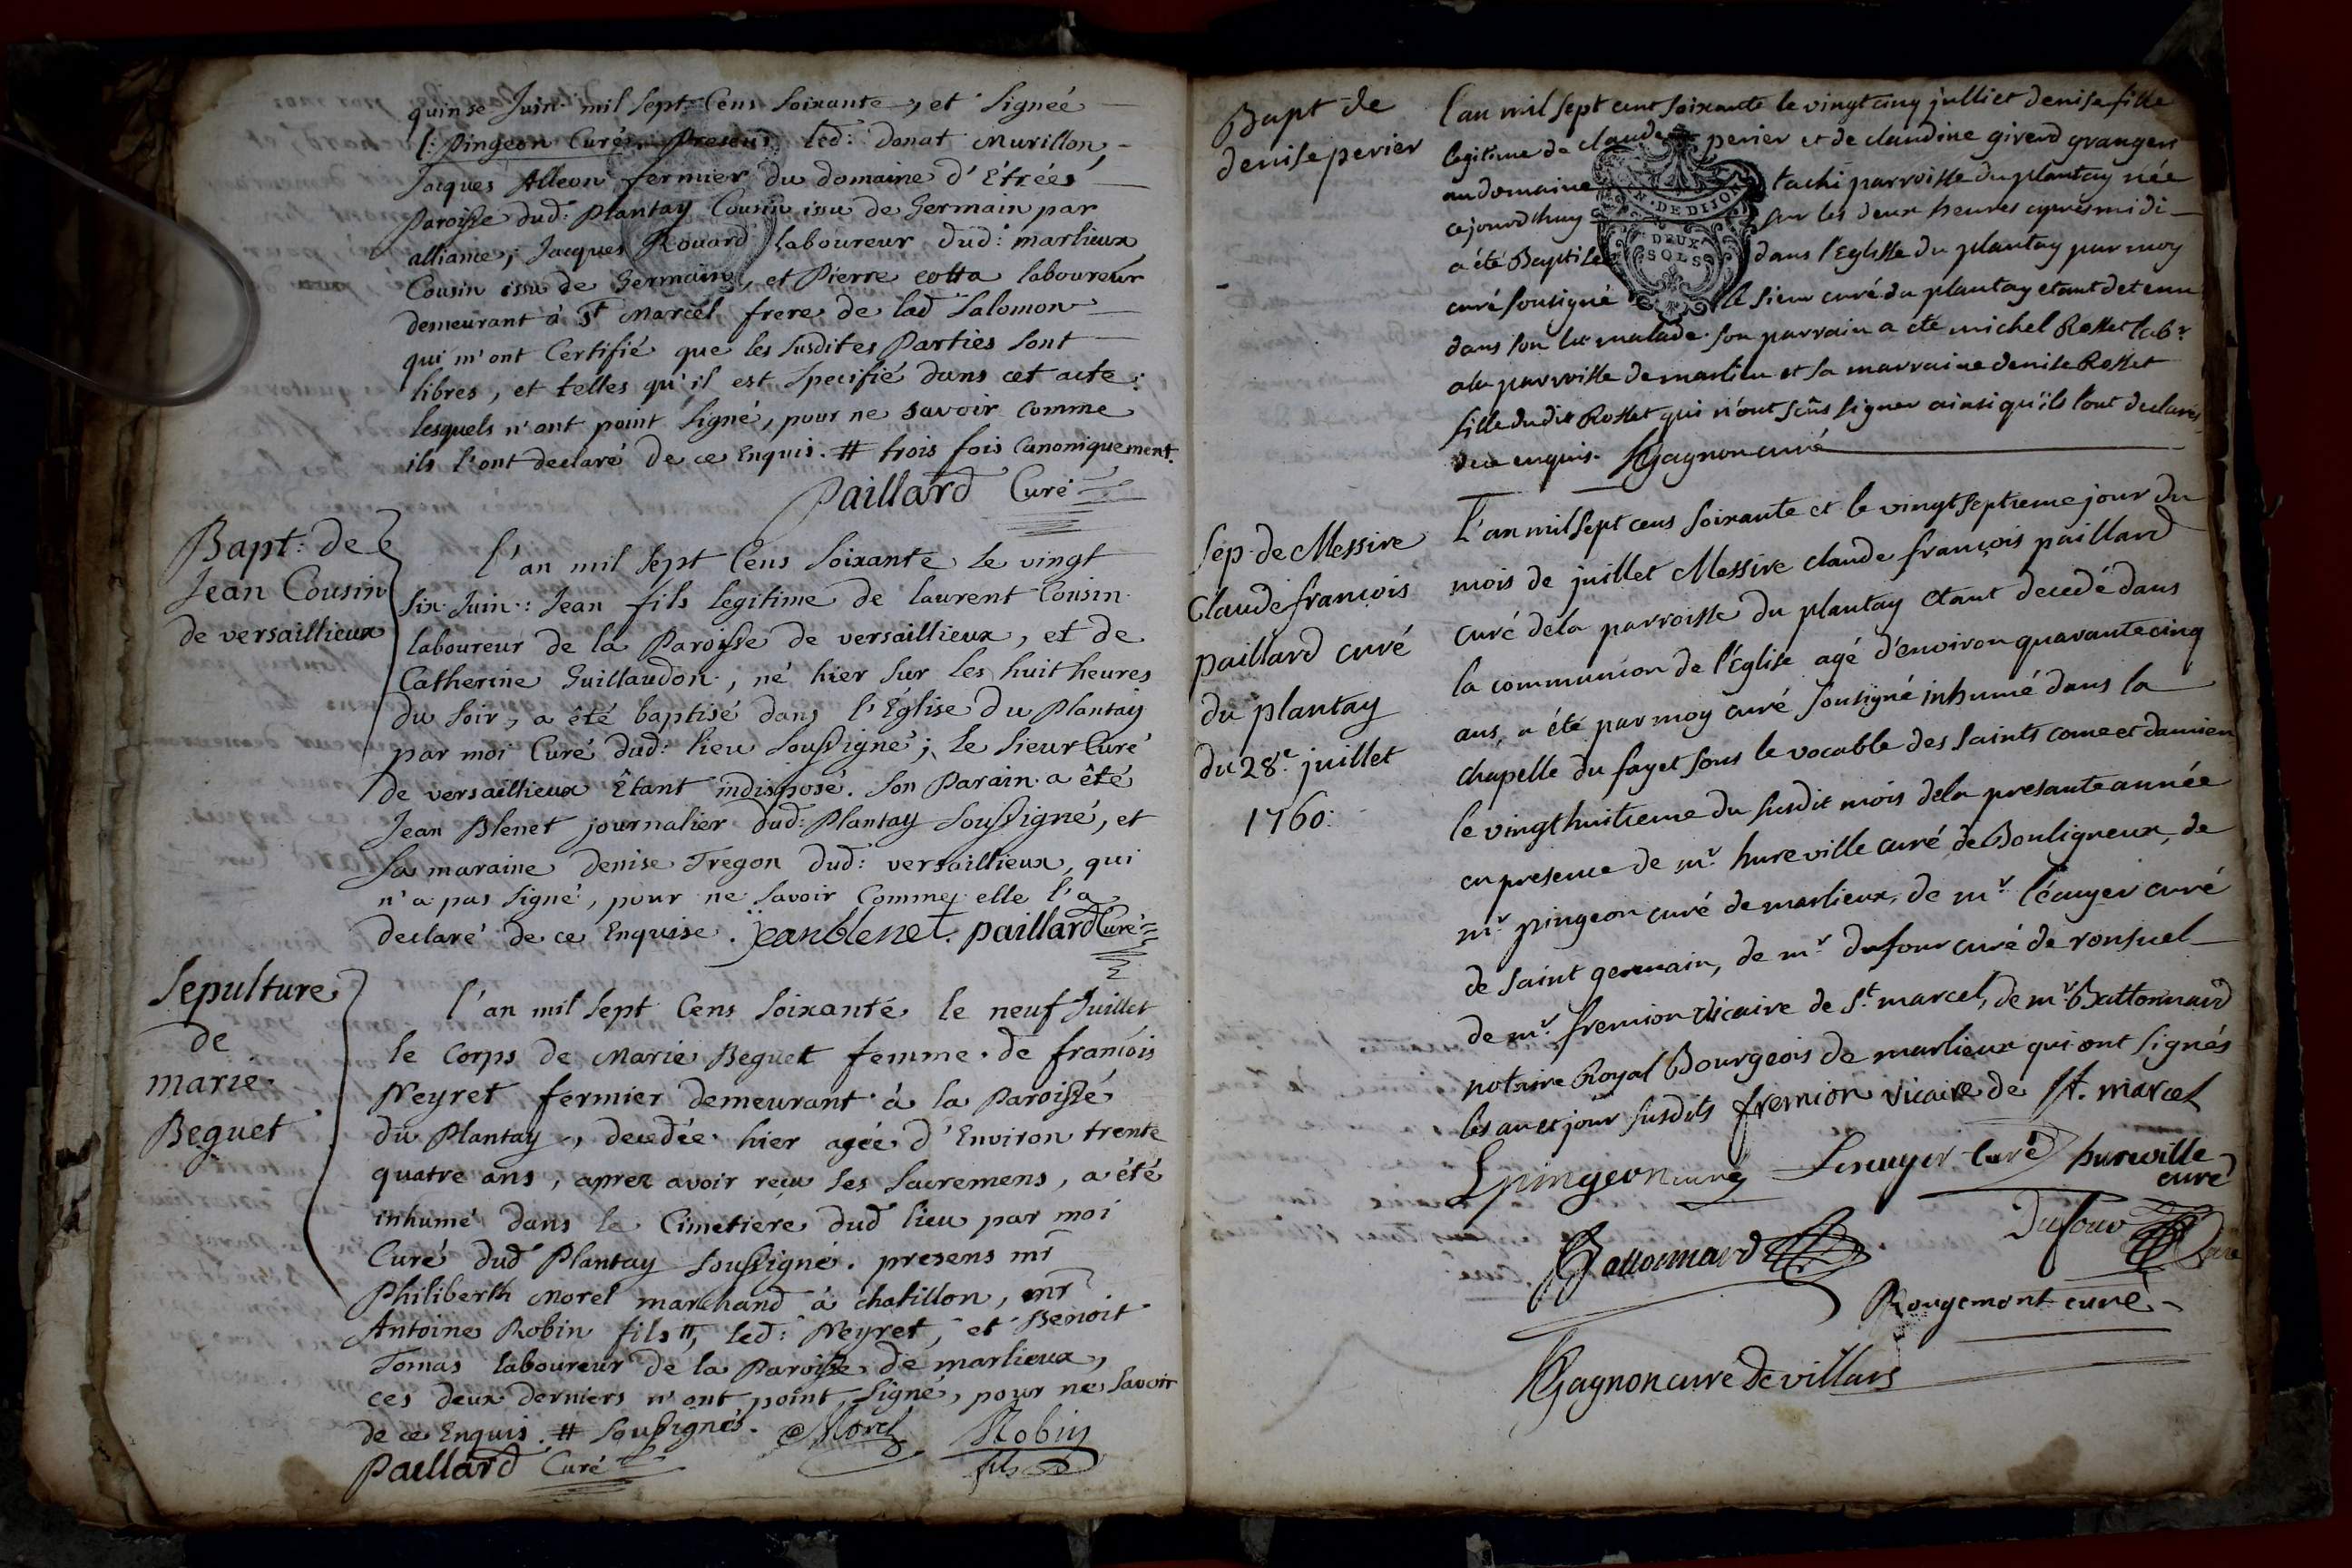 quinse Juin mil sept Cens soixante, et signée
l: Pingeon Curé. Presens led: donat Murillon,
Jacques Alleon fermier du domaine d'Etrées
Paroisse dud: Plantay Cousin issu de Germain par
alliance, Jacques Rouard laboureur dud: marlieux
Cousin issu de Germain, et Pierre cotta laboureur
demeurant à St Marcel frere de lad Salomon
qui m'ont Certifié que les susdites Parties sont
libres, et telles qu'il est specifié dans cet acte:
lesquels n'ont point signé, pour ne savoir comme
ils l'ont declaré de ce Enquis. # trois fois Canoniquement.
Paillard Curé
Bapt: de
Jean Cousin
de versaillieux
l'an mil sept Cens soixante le vingt
six Juin: Jean fils legitime de laurent Cousin
laboureur de la Paroisse de versaillieux, et de
Catherine Guillaudon, né hier sur les huit heures
du soir, a été baptisé dans l'Église du Plantay
par moi Curé dud: lieu soussigné; le sieur Curé
de versaillieux Étant indisposé. son Parain a été
Jean Blenet journalier dud: Plantay soussigné, et
sa maraine denise Tregon dud: versaillieux, qui
n'a pas signé, pour ne savoir Comme elle l'a
declaré de ce Enquise. jeanblenet. paillard Curé
Sepulture
de
marie
Beguet
l'an mil sept Cens soixante le neuf Juillet
le Corps de Marie Beguet femme de francois
Neyret fermier demeurant à la Paroisse
du Plantay, decedée hier agée d'Environ trente
quatre ans, aprez avoir reçu ses sacremens, a été
inhumé dans le Cimetiere dud lieu par moi
Curé dud Plantay soussigné. presens mr
Philiberth Morel marchand à chatillon, mr
Antoine Robin fils #, led: Neyret, et Benoit
Tomas laboureur de la Paroisse de marlieux,
ces deux derniers n'ont point signé, pour ne savoir
de ce Enquis. # soussignés. Morel Robin
Paillard Curé fils
Bapt de
denise perier
l'an mil sept cent soixante le vingt cinq julliet denise fille
legitime de claude perier et de claudine giverd grangers
au domaine tachi parroisse du plantay née
ce jourdhuy sur les deux heures apres midi
a été Baptisée dans l'Eglisse du plantay par moy
curé sousigné le sieur curé du plantay etant detenu
dans son lit malade son parrain a été michel Rosset labr
a la parroisse de marlieu et sa marraine denise Rosset
fille dudit Rosset qui n'ont sçus signer ainsi qu'ils l'ont declarés
de ce enquis. Gagnon curé
N. DE DIJON
DEUX
SOLS
Sep. de Messire
Claude françois
paillard curé
du plantay
du 28e juillet
1760.
L'an mil sept cens soixante et le vingt septieme jour du
mois de juillet Messire claude françois paillard
curé de la parroisse du plantay etant decedé dans
la communion de l'Eglise agé d'environ quarante cinq
ans, a été par moy curé sousigné inhumé dans la
chapelle du fayet sous le vocable des saints come et damien
le vingt huitieme du susdit mois de la presante année
en presence de mr hureville curé de Bouligneux, de
mr pingeon curé de marlieux, de mr l'écuyer curé
de saint germain, de mr dufour curé de ronsuel
de mr fremion vicaire de St marcel, de mr Battonnard
notaire Royal Bourgeois de marlieux qui ont signés
les an et jour susdits fremion vicaire de St. marcel
L pingeon curé Lescuyer Curé hureville
curé
Battonnard Dufour Curé
Rougemont curé
Gagnon curé de villars